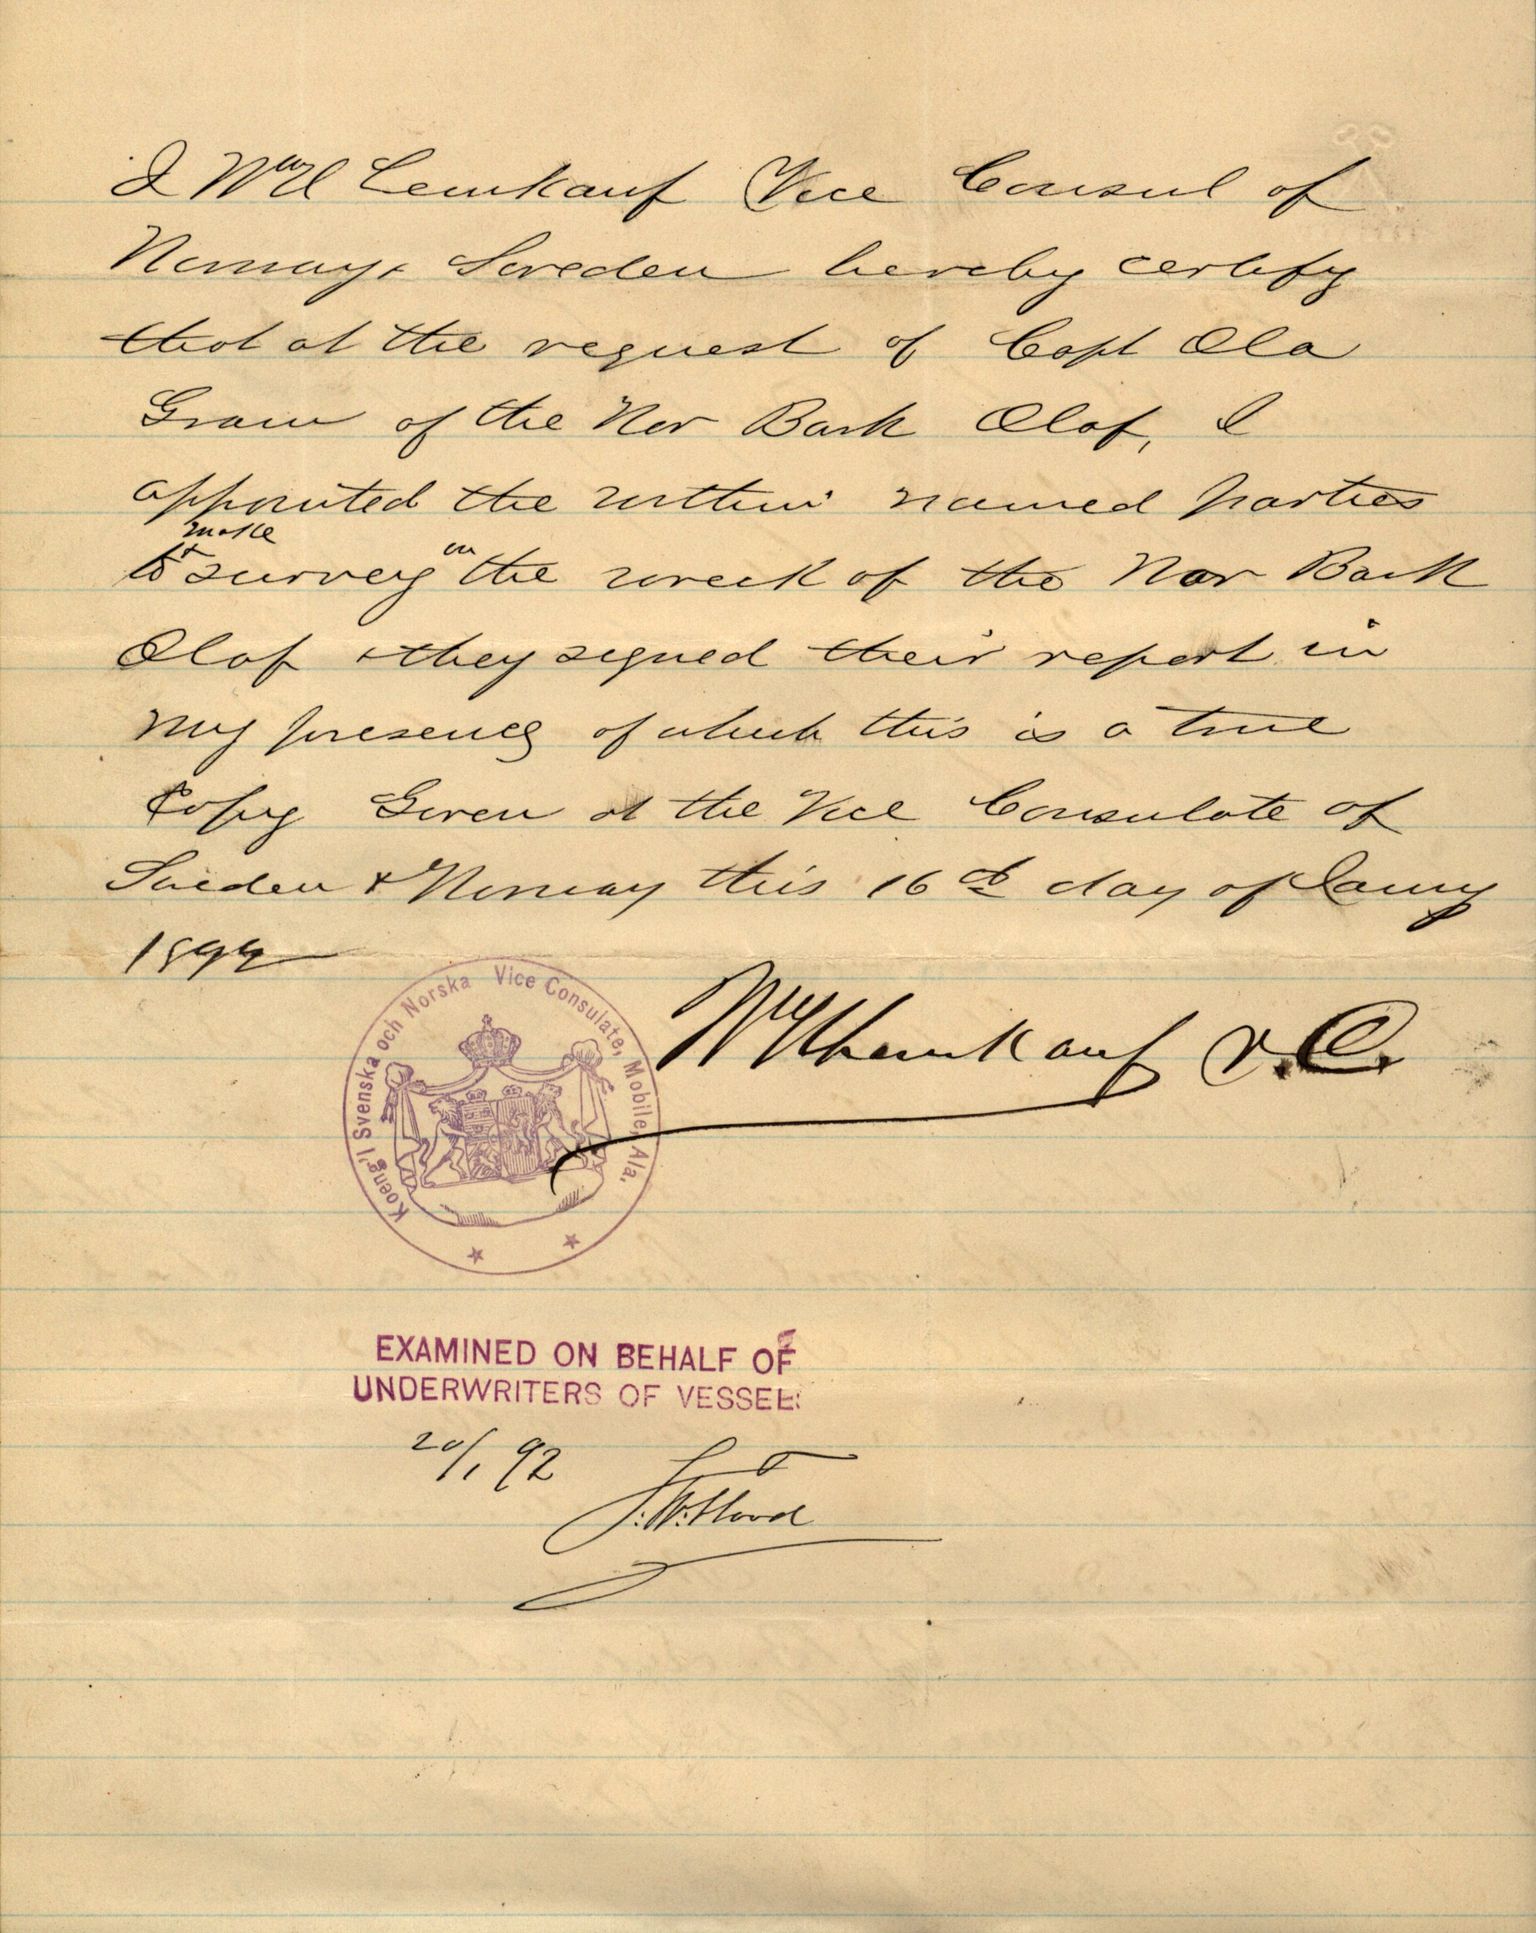 I Wm H Leinkauf Vice Consul of
Norway & Sweden hereby certify
that at the request of Capt Ola
of the Nor Bark Olaf, I
appointed the within named parties
to make survey on the wreck of the Nor Bark
Olaf & they signed their report in
my presence of which this is a true
Copy Given at the Vice Consulate of
Sweden & Norway this 16th day of Jany
1892
Koeng'l Svenska och Norska Vice Consulate, Mobile, Ala.
Wm H Leinkauf V.C.
EXAMINED ON BEHALF OF
UNDERWRITERS OF VESSEL
20/1 92